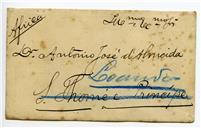 Africa
Dr. Antonio José d'Almeida
Loanda
S. Thomé e Principe